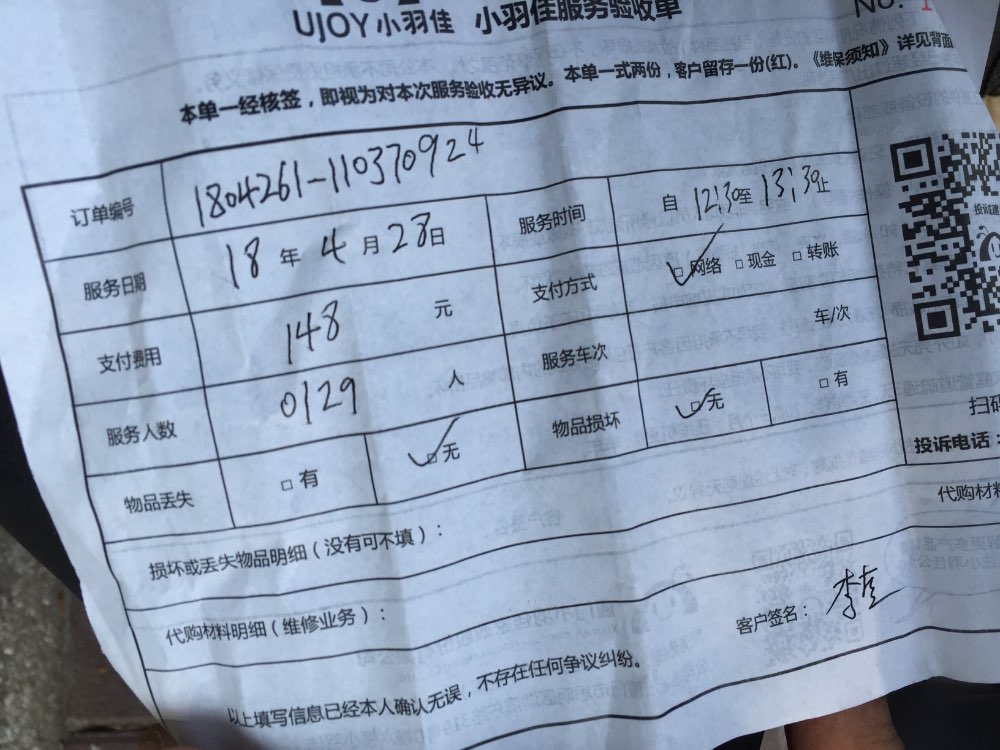 UJOY小羽佳 小羽佳服务验收单
No.
本单一经核签，即视为对本次服务验收无异议。本单一式两份，客户留存一份(红)。《维保须知》详见背面
订单编号 1804261-110370924
服务日期 18 年 4 月 28日 服务时间 自 12:30至 13:30止
支付费用 148 元 支付方式 ☑网络 □现金 □转账
服务人数 0129 人 服务车次 车/次
物品丢失 □有 ☑无 物品损坏 ☑无 □有
扫码
投诉电话：
损坏或丢失物品明细（没有可不填）：
代购材料
代购材料明细（维修业务）：
客户签名：
以上填写信息已经本人确认无误，不存在任何争议纠纷。